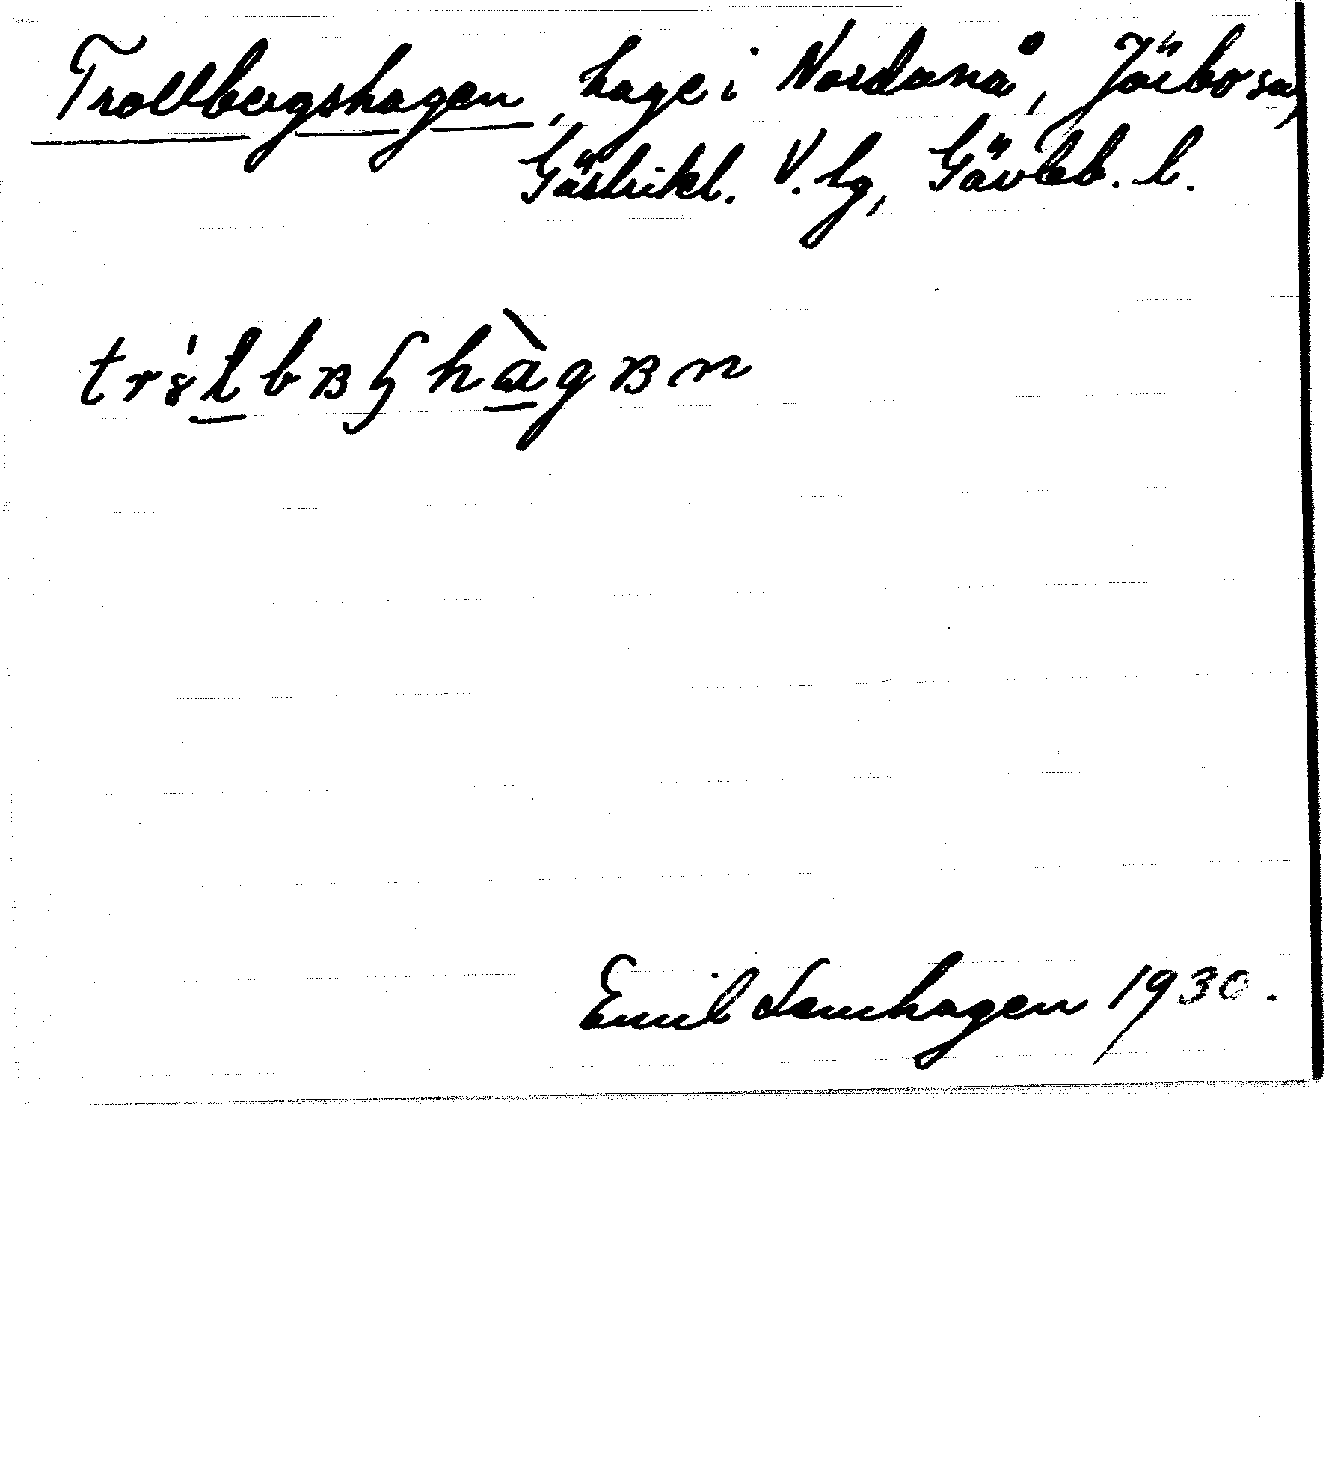 Trollbergshagen, hage i Nordanå, Järbo sn,
Gästrikl. V. tg, Gävleb. l.
tr8́lbʙꞔhàgʙn
Emil Lemhagen 1930.